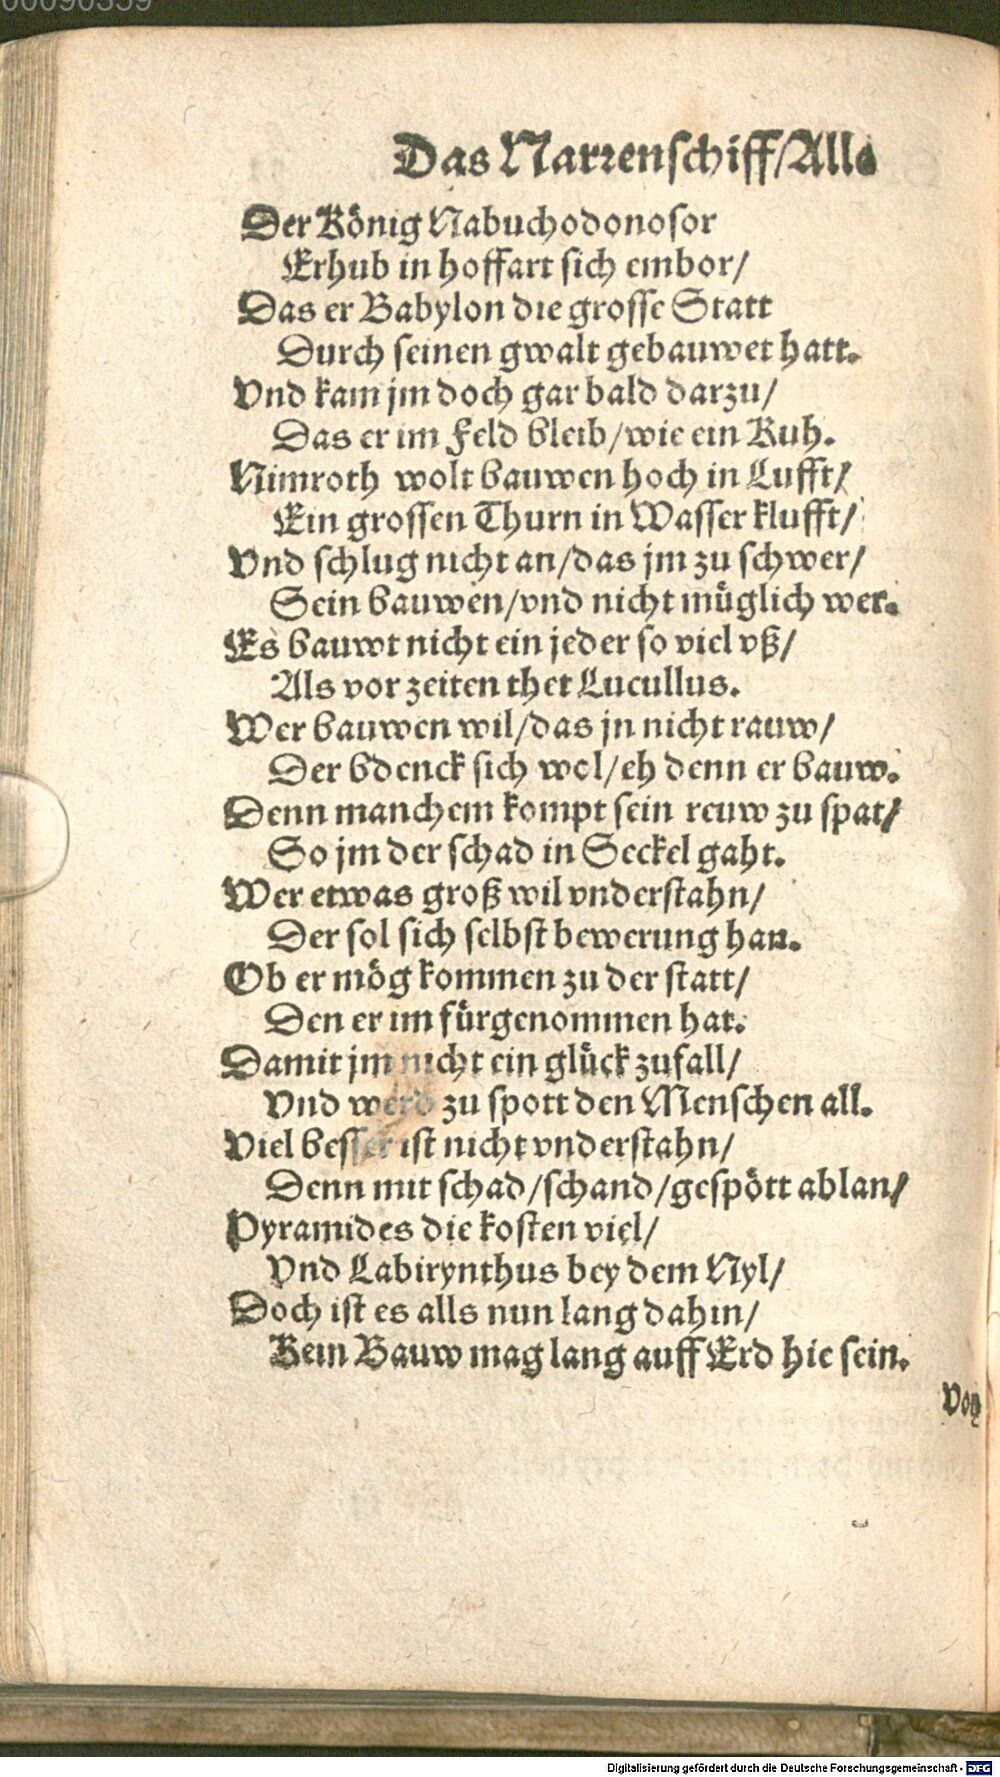 00090359
Das Narrenschiff/Alle
Der König Nabuchodonosor
Erhub in hoffart sich embor/
Das er Babylon die grosse Statt
Durch seinen gwalt gebauwet hatt.
Vnd kam jm doch gar bald darzu/
Das er im Feld bleib/wie ein Kuh.
Nimroth wolt bauwen hoch in Lufft/
Ein grossen Thurn in Wasser klufft/
Vnd schlug nicht an/das jm zu schwer/
Sein bauwen/vnd nicht müglich wer.
Es bauwt nicht ein jeder so viel vß/
Als vor zeiten thet Lucullus.
Wer bauwen wil/das jn nicht rauw/
Der bdenck sich wol/eh denn er bauw.
Denn manchem kompt sein reuw zu spat/
So jm der schad in Seckel gaht.
Wer etwas groß wil vnderstahn/
Der sol sich selbst bewerung han.
Ob er mög kommen zu der statt/
Den er im fürgenommen hat.
Damit jm nicht ein glück zufall/
Vnd werd zu spott den Menschen all.
Viel besser ist nicht vnderstahn/
Denn mit schad/schand/gespött ablan/
Pyramides die kosten viel/
Vnd Labirynthus bey dem Nyl/
Doch ist es alls nun lang dahin/
Kein Bauw mag lang auff Erd hie sein.
Von
Digitalisierung gefördert durch die Deutsche Forschungsgemeinschaft - DFG